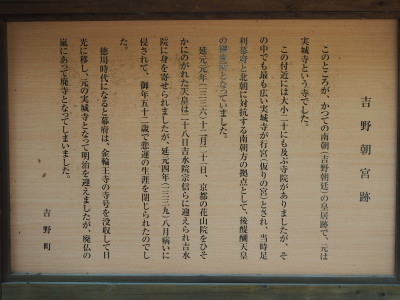 吉野朝宮跡
このところが、かつての南朝(吉野朝廷)の皇居跡で、元は
実城寺という寺でした。
この付近には大小二十にも及ぶ寺院がありましたが、そ
の中でも最も広い実城寺が行宮(仮りの宮)とされ、当時足
利幕府と北朝に対抗する南朝方の拠点として、後醍醐天皇
の
となっていました。
延元元年(一三三六)十二月二十一日、京都の花山院をひそ
かにのがれた天皇は二十八日吉水院宗信らに迎えられ吉水
院に身を寄せられましたが、延元四年(一三三九)八月病いに
侵されて、御年五十二歳で悲運の生涯を閉じられたのでし
た。
徳川時代になると幕府は、金輪王寺の寺号を没収して日
光に移し、元の実城寺となって明治を迎えましたが、廃仏の
嵐にあって廃寺となってしまいました。
吉野町